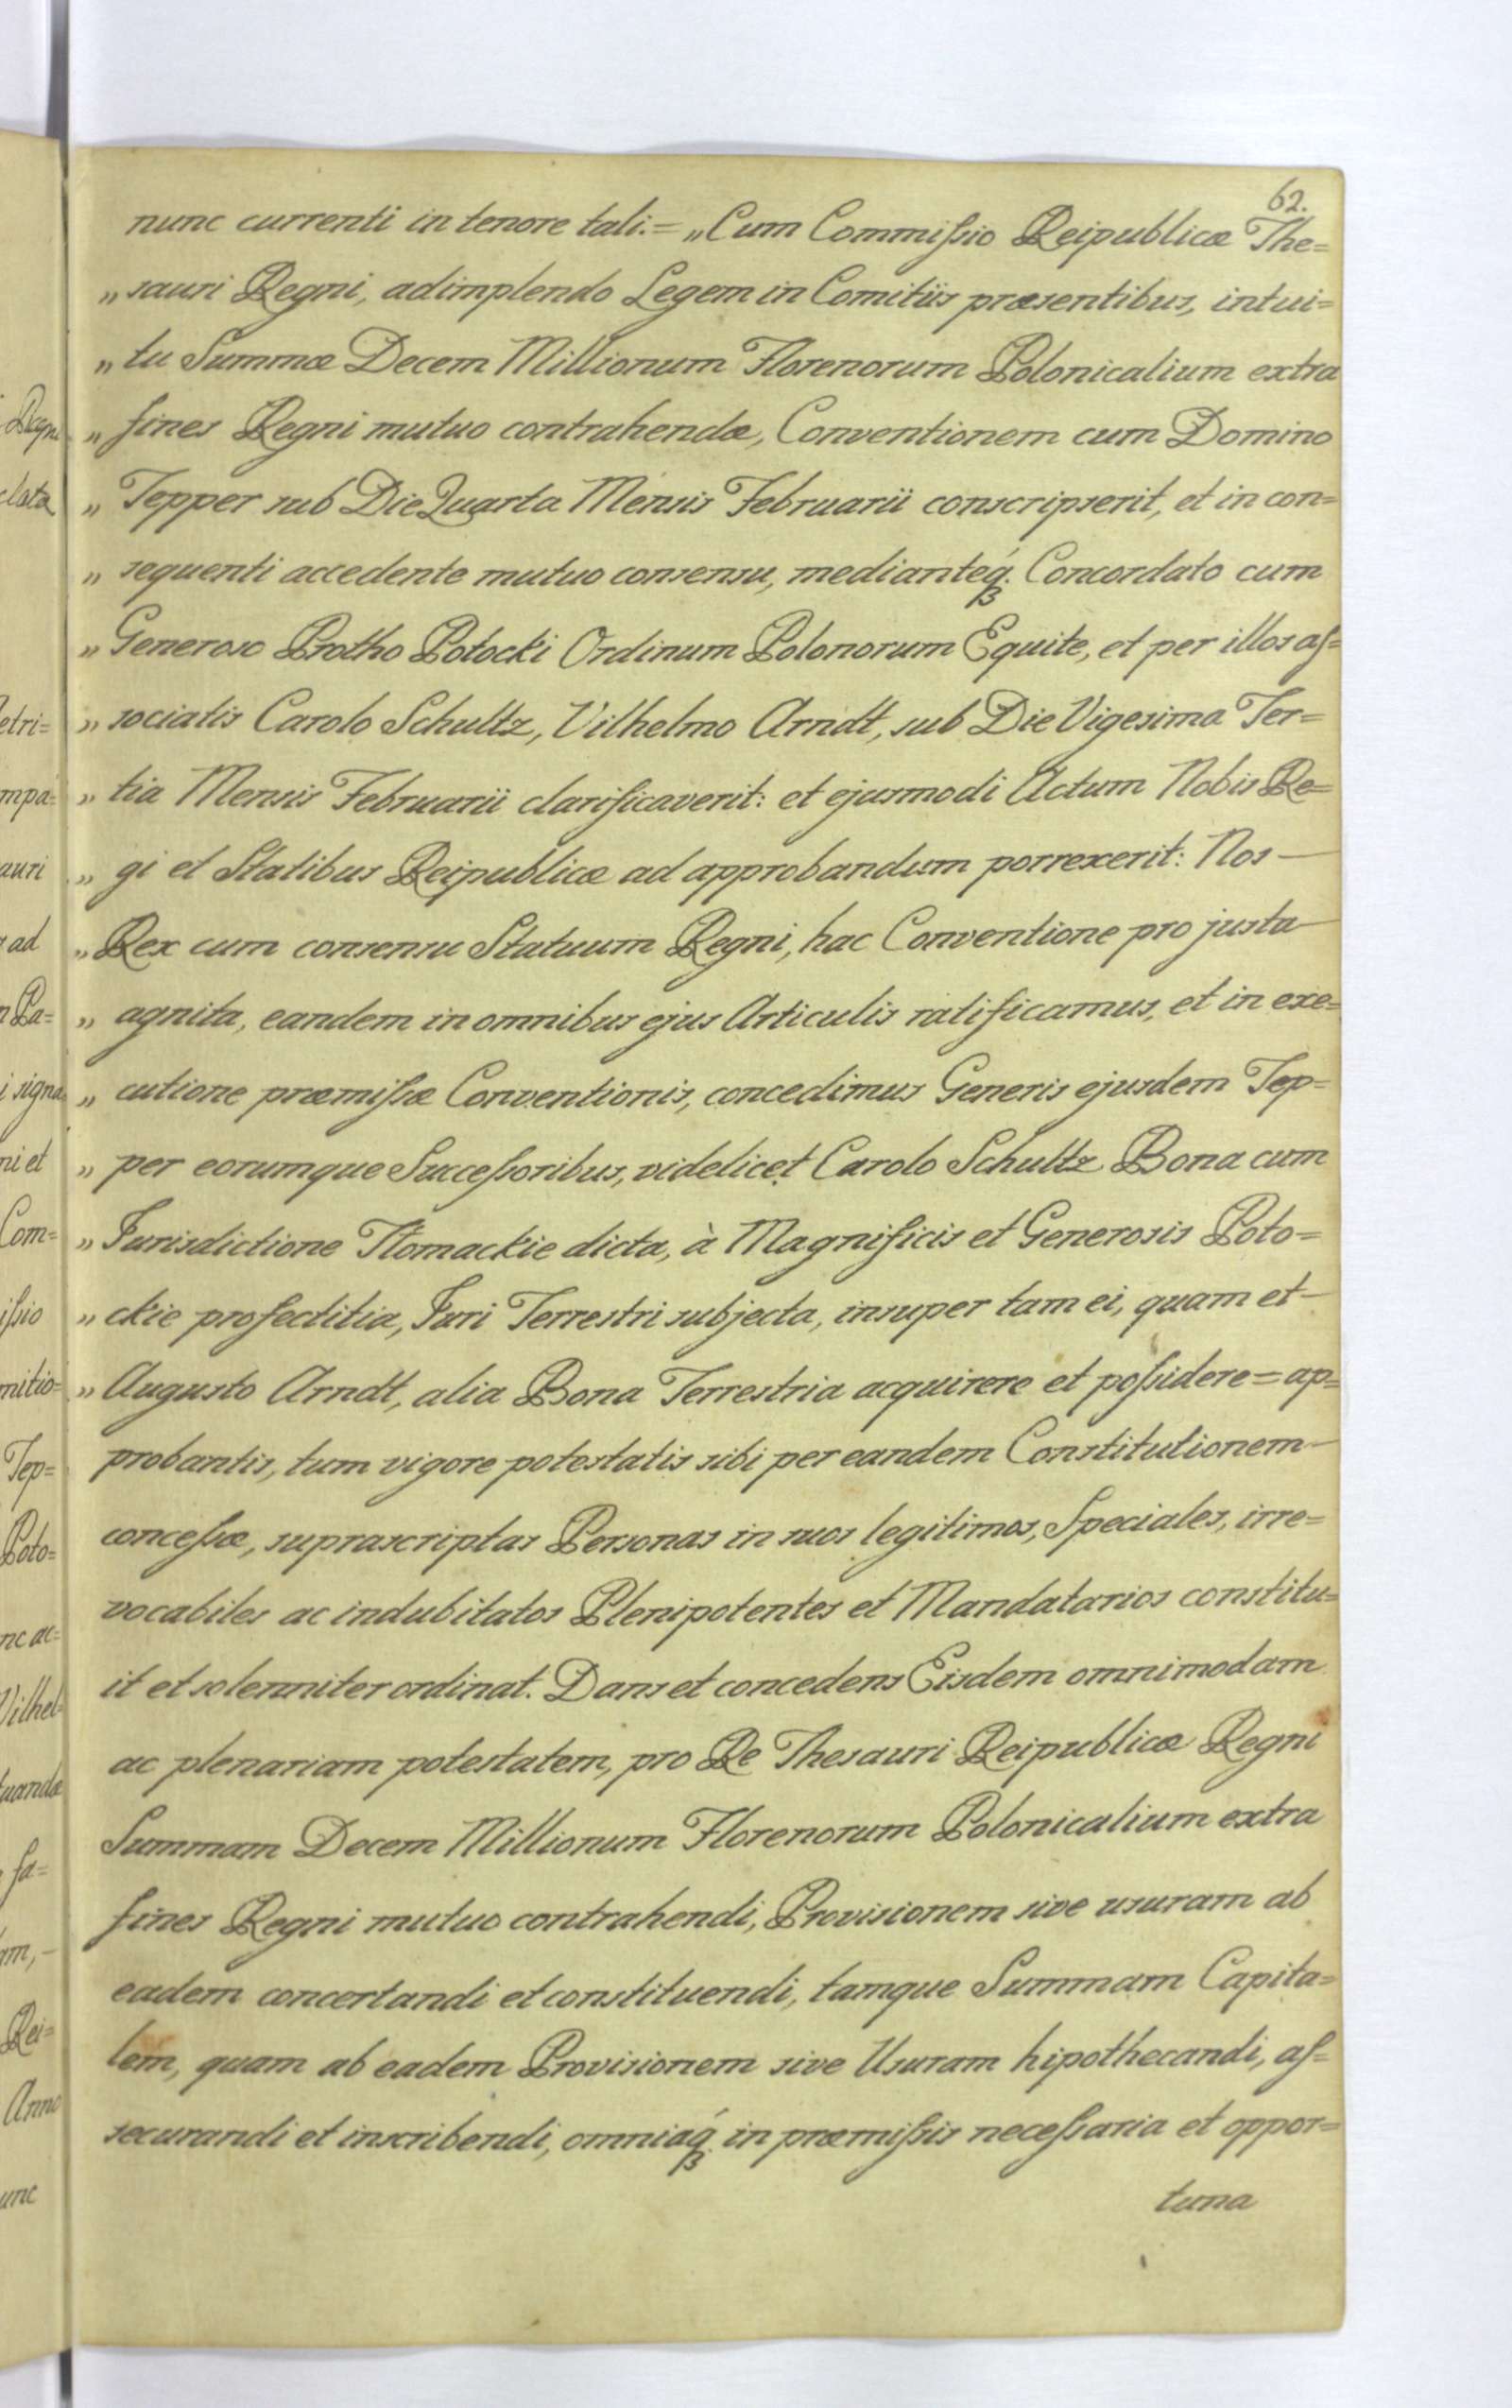 62.
nunc currenti in tenore tali.= „Cum Commiſsio Reipublicæ The=
„sauri Regni, adimplendo Legem in Comitiis præsentibus, intui=
„tu Summæ Decem Millionum Florenorum Polonicalium extra
„fines Regni mutuo contrahendæ, Conventionem cum Domino
„Tepper sub Die Quarta Mensis Februarii conscripserit, et in con=
„sequenti accedente mutuo consensu, medianteq́ꝫ Concordato cum
„Generoso Protho Potocki Ordinum Polonorum Equite, et per illos aſ=
„sociatis Carolo Schultz, Vilhelmo Arndt, sub Die Vigesima Ter=
„tia Mensis Februarii clarificaverit: et ejusmodi Actum Nobis Re=
„gi et Statibus Reipublicæ ad approbandum porrexerit: Nos —
„Rex cum consensu Statuum Regni, hac Conventione pro justa
„agnita, eandem in omnibus ejus Articulis ratificamus, et in exe=
„cutione præmiſsæ Conventionis, concedimus Generis ejusdem Tep=
„per eorumque Succeſsoribus, videlicet Carolo Schultz Bona cum
„Jurisdictione Tłomackie dicta, à Magnificis et Generosis Poto=
„ckie profectitia, Juri Terrestri subjecta, insuper tam ei, quam et —
„Augusto Arndt, alia Bona Terrestria acquirere et poſsidere = ap=
probantis, tum vigore potestatis sibi per eandem Constitutionem —
conceſsæ, suprascriptas Personas in suos legitimos, Speciales, irre=
vocabiles ac indubitatos Plenipotentes et Mandatarios constitu=
it et solenniter ordinat. Dans et concedens Eisdem omnimodam
ac plenariam potestatem, pro Re Thesauri Reipublicæ Regni
Summam Decem Millionum Florenorum Polonicalium extra
fines Regni mutuo contrahendi, Provisionem sive usuram ab
eadem concertandi et constituendi, tamque Summam Capita=
lem, quam ab eadem Provisionem sive Usuram hipothecandi, aſ=
securandi et inscribendi, omniaq́ꝫ in præmiſsis neceſsaria et oppor=
tuna